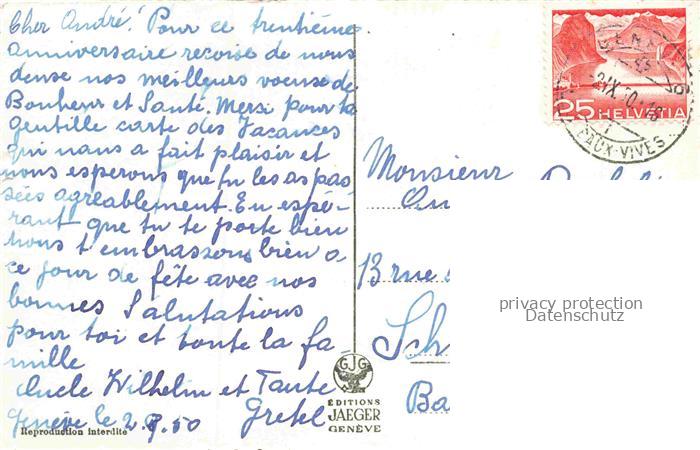 Cher André! Pour ce trentième
anniversaire recoise de nous
deuse nos meilleurs voeuse de
Bonheur et Santé. Mersi pour ta
gentille carte des Vacances
qui nous a fait plaisir et
nous esperons que tu les as pas
sées agréablement. En espé-
rant que tu te porte bien
nous t'embrassons bien a
ce jour de fête avec nos
bonnes Salutations
pour toi et toute la fa-
mille
Oncle Wilhelm et Tante
Gretel
Genève le 2.9.50
Reproduction interdite
GJG
ÉDITIONS
JAEGER
GENÈVE
25 HELVETIA
EAUX-VIVES
Monsieur
13 rue
Sch
Ba
privacy protection
Datenschutz